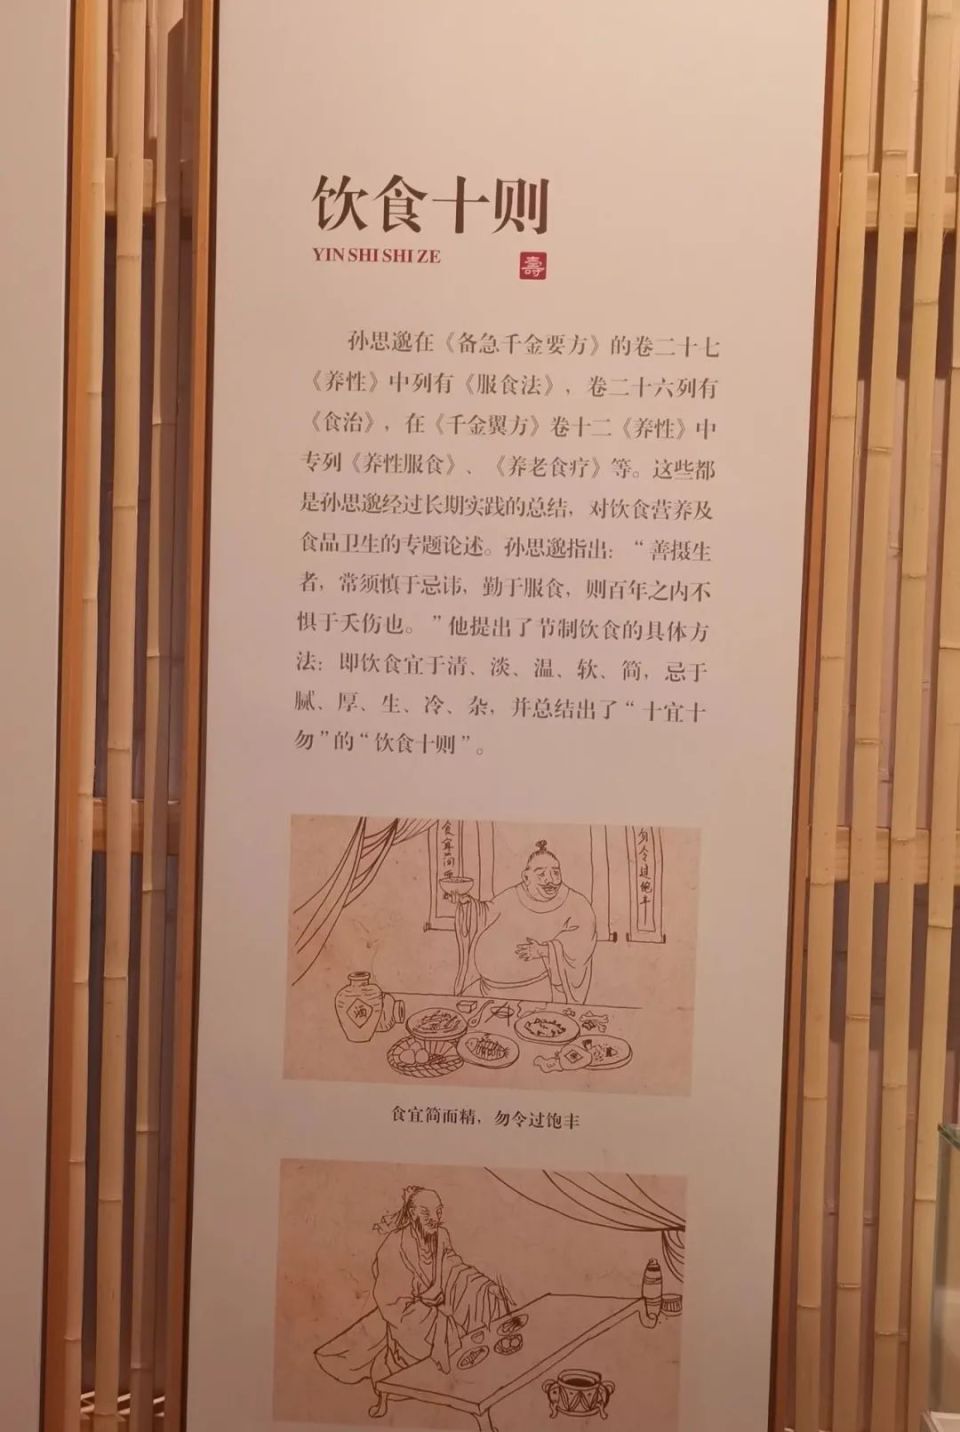 饮食十则
YIN SHI SHI ZE
壽
孙思邈在《备急千金要方》的卷二十七
《养性》中列有《服食法》，卷二十六列有
《食治》，在《千金翼方》卷十二《养性》中
专列《养性服食》、《养老食疗》等。这些都
是孙思邈经过长期实践的总结，对饮食营养及
食品卫生的专题论述。孙思邈指出：“善摄生
者，常须慎于忌讳，勤于服食，则百年之内不
惧于夭伤也。”他提出了节制饮食的具体方
法：即饮食宜于清、淡、温、软、简，忌于
腻、厚、生、冷、杂，并总结出了“十宜十
勿”的“饮食十则”。
食宜简而
勿令过饱丰
酒
食宜简而精，勿令过饱丰